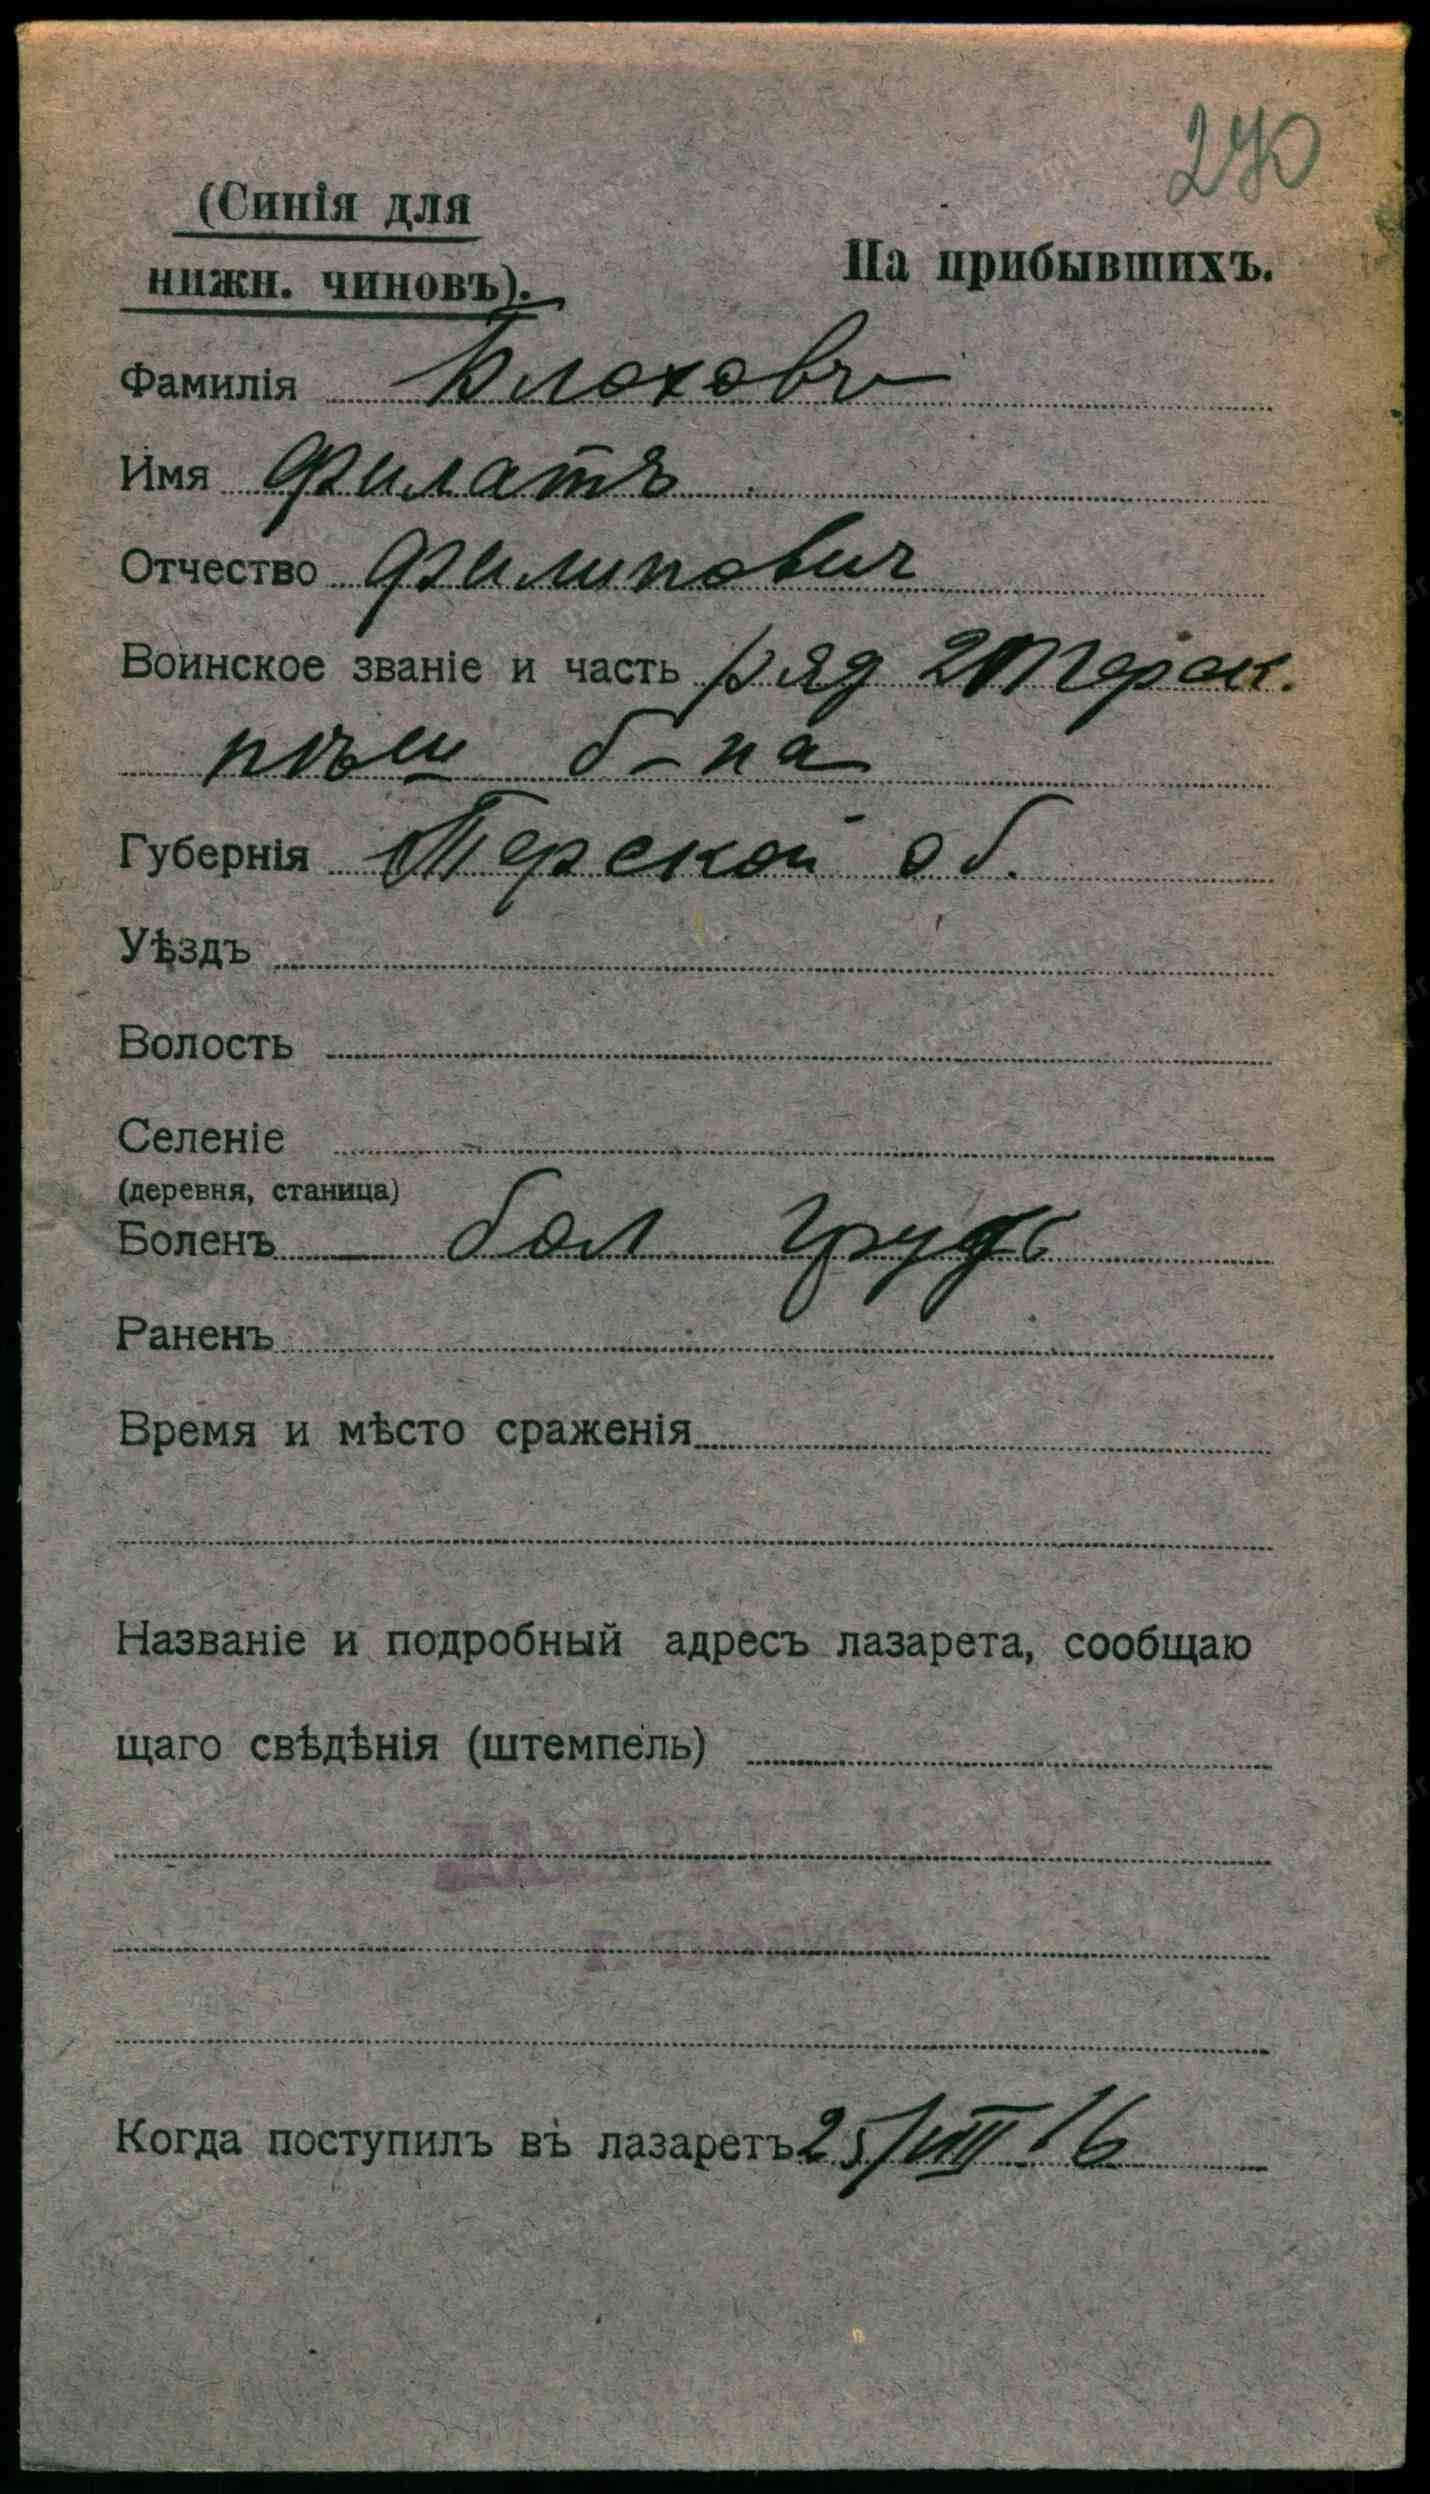 270
(Синія для
нижн. чиновъ).
На прибывшихъ.
Фамилія Блоховъ
Имя Филатъ
Отчество Филипович
Воинское званіе и часть ряд 2 Терск.
плъш б-на
Губернія Терской об.
Уѣздъ
Волость
Селеніе
(деревня, станица)
Боленъ бол грудь
Раненъ
Время и мѣсто сраженія
Названіе и подробный адресъ лазарета, сообщаю
щаго свѣдѣнія (штемпель)
ЛАЗАРЕТ
Когда поступилъ въ лазаретъ 25/VIII 16